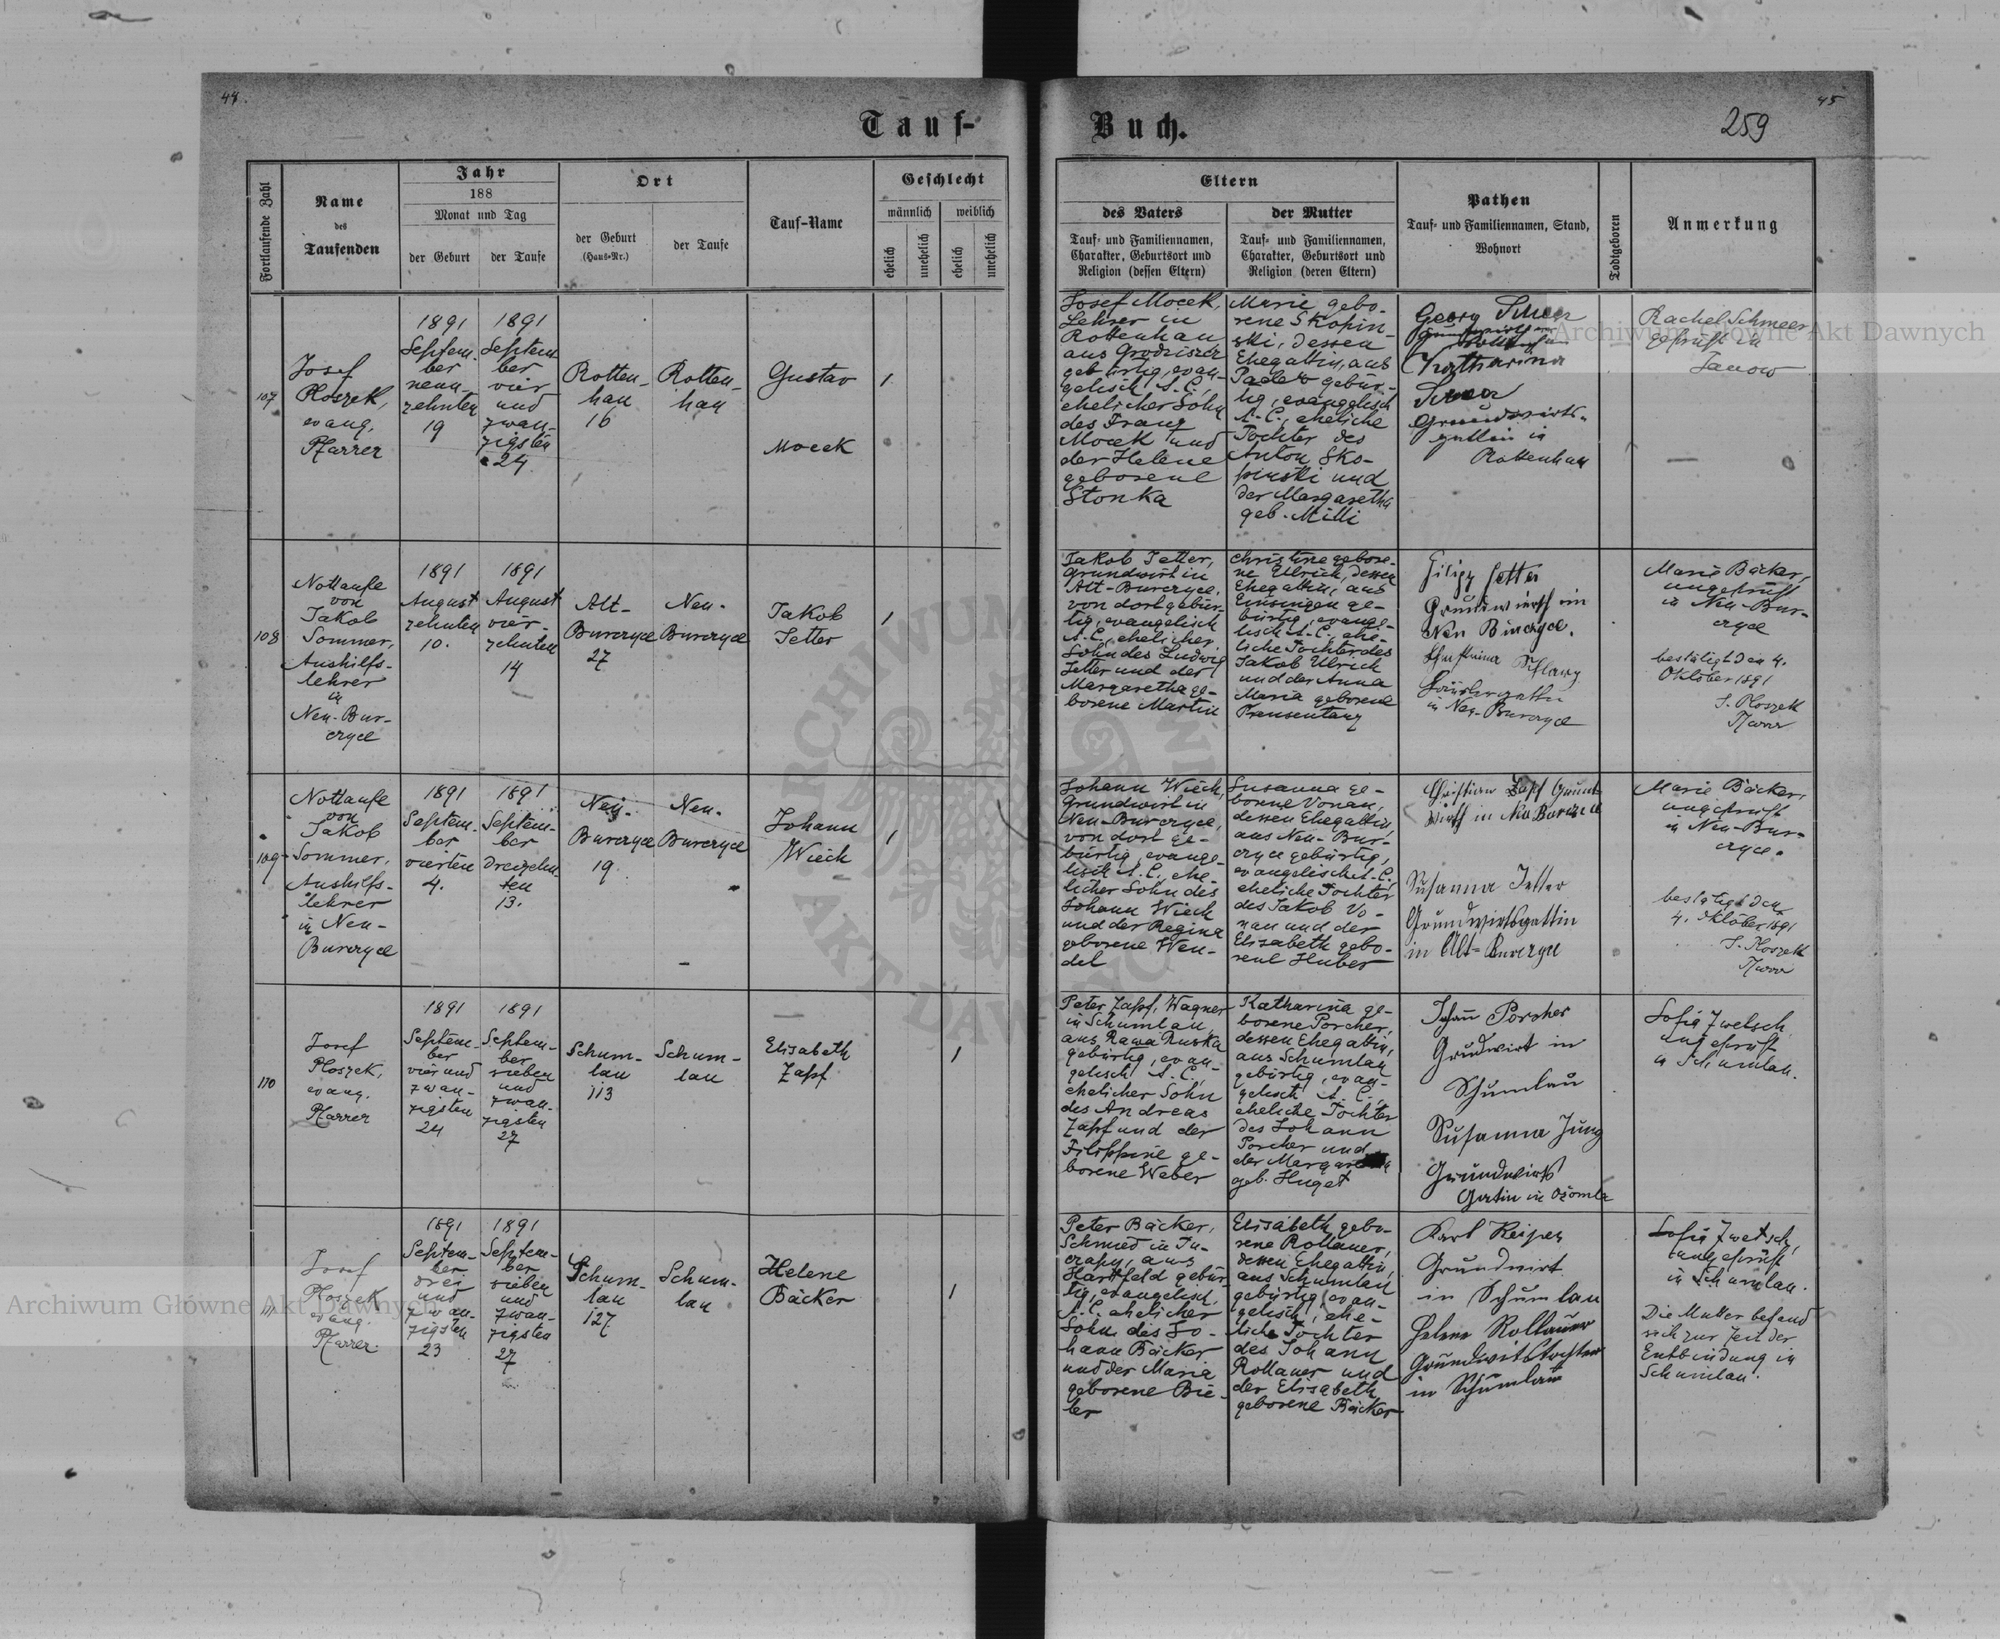 44.
45
259
Tauf-
Buch.
Fortlaufende Zahl
Name
des
Taufenden
Jahr
188
Monat und Tag
der Geburt
der Taufe
Ort
der Geburt
(Haus-Nr.)
der Taufe
Tauf-Name
Geschlecht
männlich
weiblich
ehelich
unehelich
ehelich
unehelich
Eltern
des Vaters
Tauf- und Familiennamen,
Charakter, Geburtsort und
Religion (dessen Eltern)
der Mutter
Tauf- und Familiennamen,
Charakter, Geburtsort und
Religion (deren Eltern)
Pathen
Tauf- und Familiennamen, Stand,
Wohnort
Todtgeboren
Anmerkung
107
Josef
Ploszek,
evang.
Pfarrer
1891
Septem-
ber
neun-
zehnten
19
1891
Septem
ber
vier
und
zwan-
zigsten
24
Rotten-
hau
16
Rotten-
hau
Gustav
Mocek
1
Josef Mocek,
Lehrer in
Rottenhau
aus Grodziszcz
gebürtig, evan-
gelisch A. C.,
ehelicher Sohn
des Franz
Mocek und
der Helene
geborene
Stonka
Marie gebo-
rene Skopin-
ski, dessen
Ehegattin, aus
gebür-
tig, evangelisch
A. C., eheliche
Tochter des
Anton Sko-
pinski und
der Margaretha
geb. Milli
Georg
Katharina
Grundwirts-
gattin in
Rottenhau
Rachel Schmeer
geprüft in
Janow
108
Nottaufe
von
Jakob
Sommer,
Aushilfs-
lehrer
in
Neu-Bur-
czyce
1891
August
zehnten
10.
1891
August
vier-
zehnten
14
Alt-
Burczyce
27
Neu-
Burczyce
Jakob
Jetter
1
Jakob Jetter,
Grundwirt in
Alt-Burczyce,
von dort gebür-
tig, evangelisch
A. C., ehelicher
Sohn des Ludwig
Jetter und der
Margaretha ge-
borene Martin
Christine gebore-
ne Ulrich, dessen
Ehegattin, aus
Einsingen ge-
bürtig, evange-
lisch A. C., ehe-
liche Tochter des
Jakob Ulrich
und der Anna
Maria geborene
Filipp Jetter
Grundwirth in
Neu Burczyce.
Christina
in Neu-Burczyce
Marie Bäcker,
ungeprüft
in Neu-Bur-
czyce
bestätigt den 4.
Oktober 1891
J. Ploszek
Pfarrer
109
Nottaufe
von
Jakob
Sommer,
Aushilfs-
lehrer
in Neu-
Burczyce
1891
Septem-
ber
vierten
4.
1891
Septem-
ber
dreizehn-
ten
13.
Neu-
Burczyce
19
Neu-
Burczyce
Johann
Wiech
1
Johann Wiech,
Grundwirt in
Neu-Burczyce,
von dort ge-
bürtig, evange-
lisch A. C., ehe-
licher Sohn des
Johann Wiech
und der Regina
geborene Wen-
del
Susanna ge-
borene Vonau,
dessen Ehegattin,
aus Neu-Bur-
czyce gebürtig,
evangelisch A. C.,
eheliche Tochter
des Jakob Vo-
nau und der
Elisabeth gebo-
rene Huber
Christian Zapf Grund
wirth in Neu Burczyce
Susanna Jetter
Grundwirtsgattin
in Alt-Burczyce
Marie Bäcker,
ungeprüft
in Neu-Bur-
czyce.
bestätigt den
4. Oktober 1891
J. Ploszek
Pfarrer
110
Josef
Ploszek,
evang.
Pfarrer
1891
Septem-
ber
vier und
zwan-
zigsten
24
1891
Septem-
ber
sieben
und
zwan-
zigsten
27
Schum-
lau
113
Schum-
lau
Elisabeth
Zapf
1
Peter Zapf, Wagner
in Schumlau,
aus Rawa Ruska
gebürtig, evan-
gelisch A. C.,
ehelicher Sohn
des Andreas
Zapf und der
Filippine ge-
borene Weber
Katharina ge-
borene Porcher,
dessen Ehegattin,
aus Schumlau
gebürtig, evan-
gelisch A. C.,
eheliche Tochter
des Johann
Porcher und
der Margaretha
geb. Huget
Johann Porcher
Grundwirt in
Schumlau
Susanna Jung
Grundwirts
Gattin in Ożomla
Sofia Zwetsch,
ungeprüft
in Schumlau.
111
Josef
Ploszek
evang.
Pfarrer.
1891
Septem-
ber
drei
und
zwan-
zigsten
23
1891
Septem-
ber
sieben
und
zwan-
zigsten
27
Schum-
lau
127
Schum-
lau
Helene
Bäcker
1
Peter Bäcker,
Schmied in Tu-
czapy, aus
Hartfeld gebür-
tig, evangelisch,
A. C. ehelicher
Sohn des Jo-
hann Bäcker
und der Maria
geborene Bie-
ler
Elisabeth gebo-
rene Rollauer,
dessen Ehegattin,
aus Schumlau
gebürtig, evan-
gelisch, ehe-
liche Tochter
des Johann
Rollauer und
der Elisabeth
geborene Bäcker
Karl Reiper
Grundwirt
in Schumlau
Helene Rollauer
Grundwirtstochter
in Schumlau
Sofia Zwetsch,
ungeprüft
in Schumlau.
Die Mutter befand
sich zur Zeit der
Entbindung in
Schumlau.
Archiwum Główne Akt Dawnych
Archiwum Główne Akt Dawnych
ARCHIWUM
AKT DAWNYCH